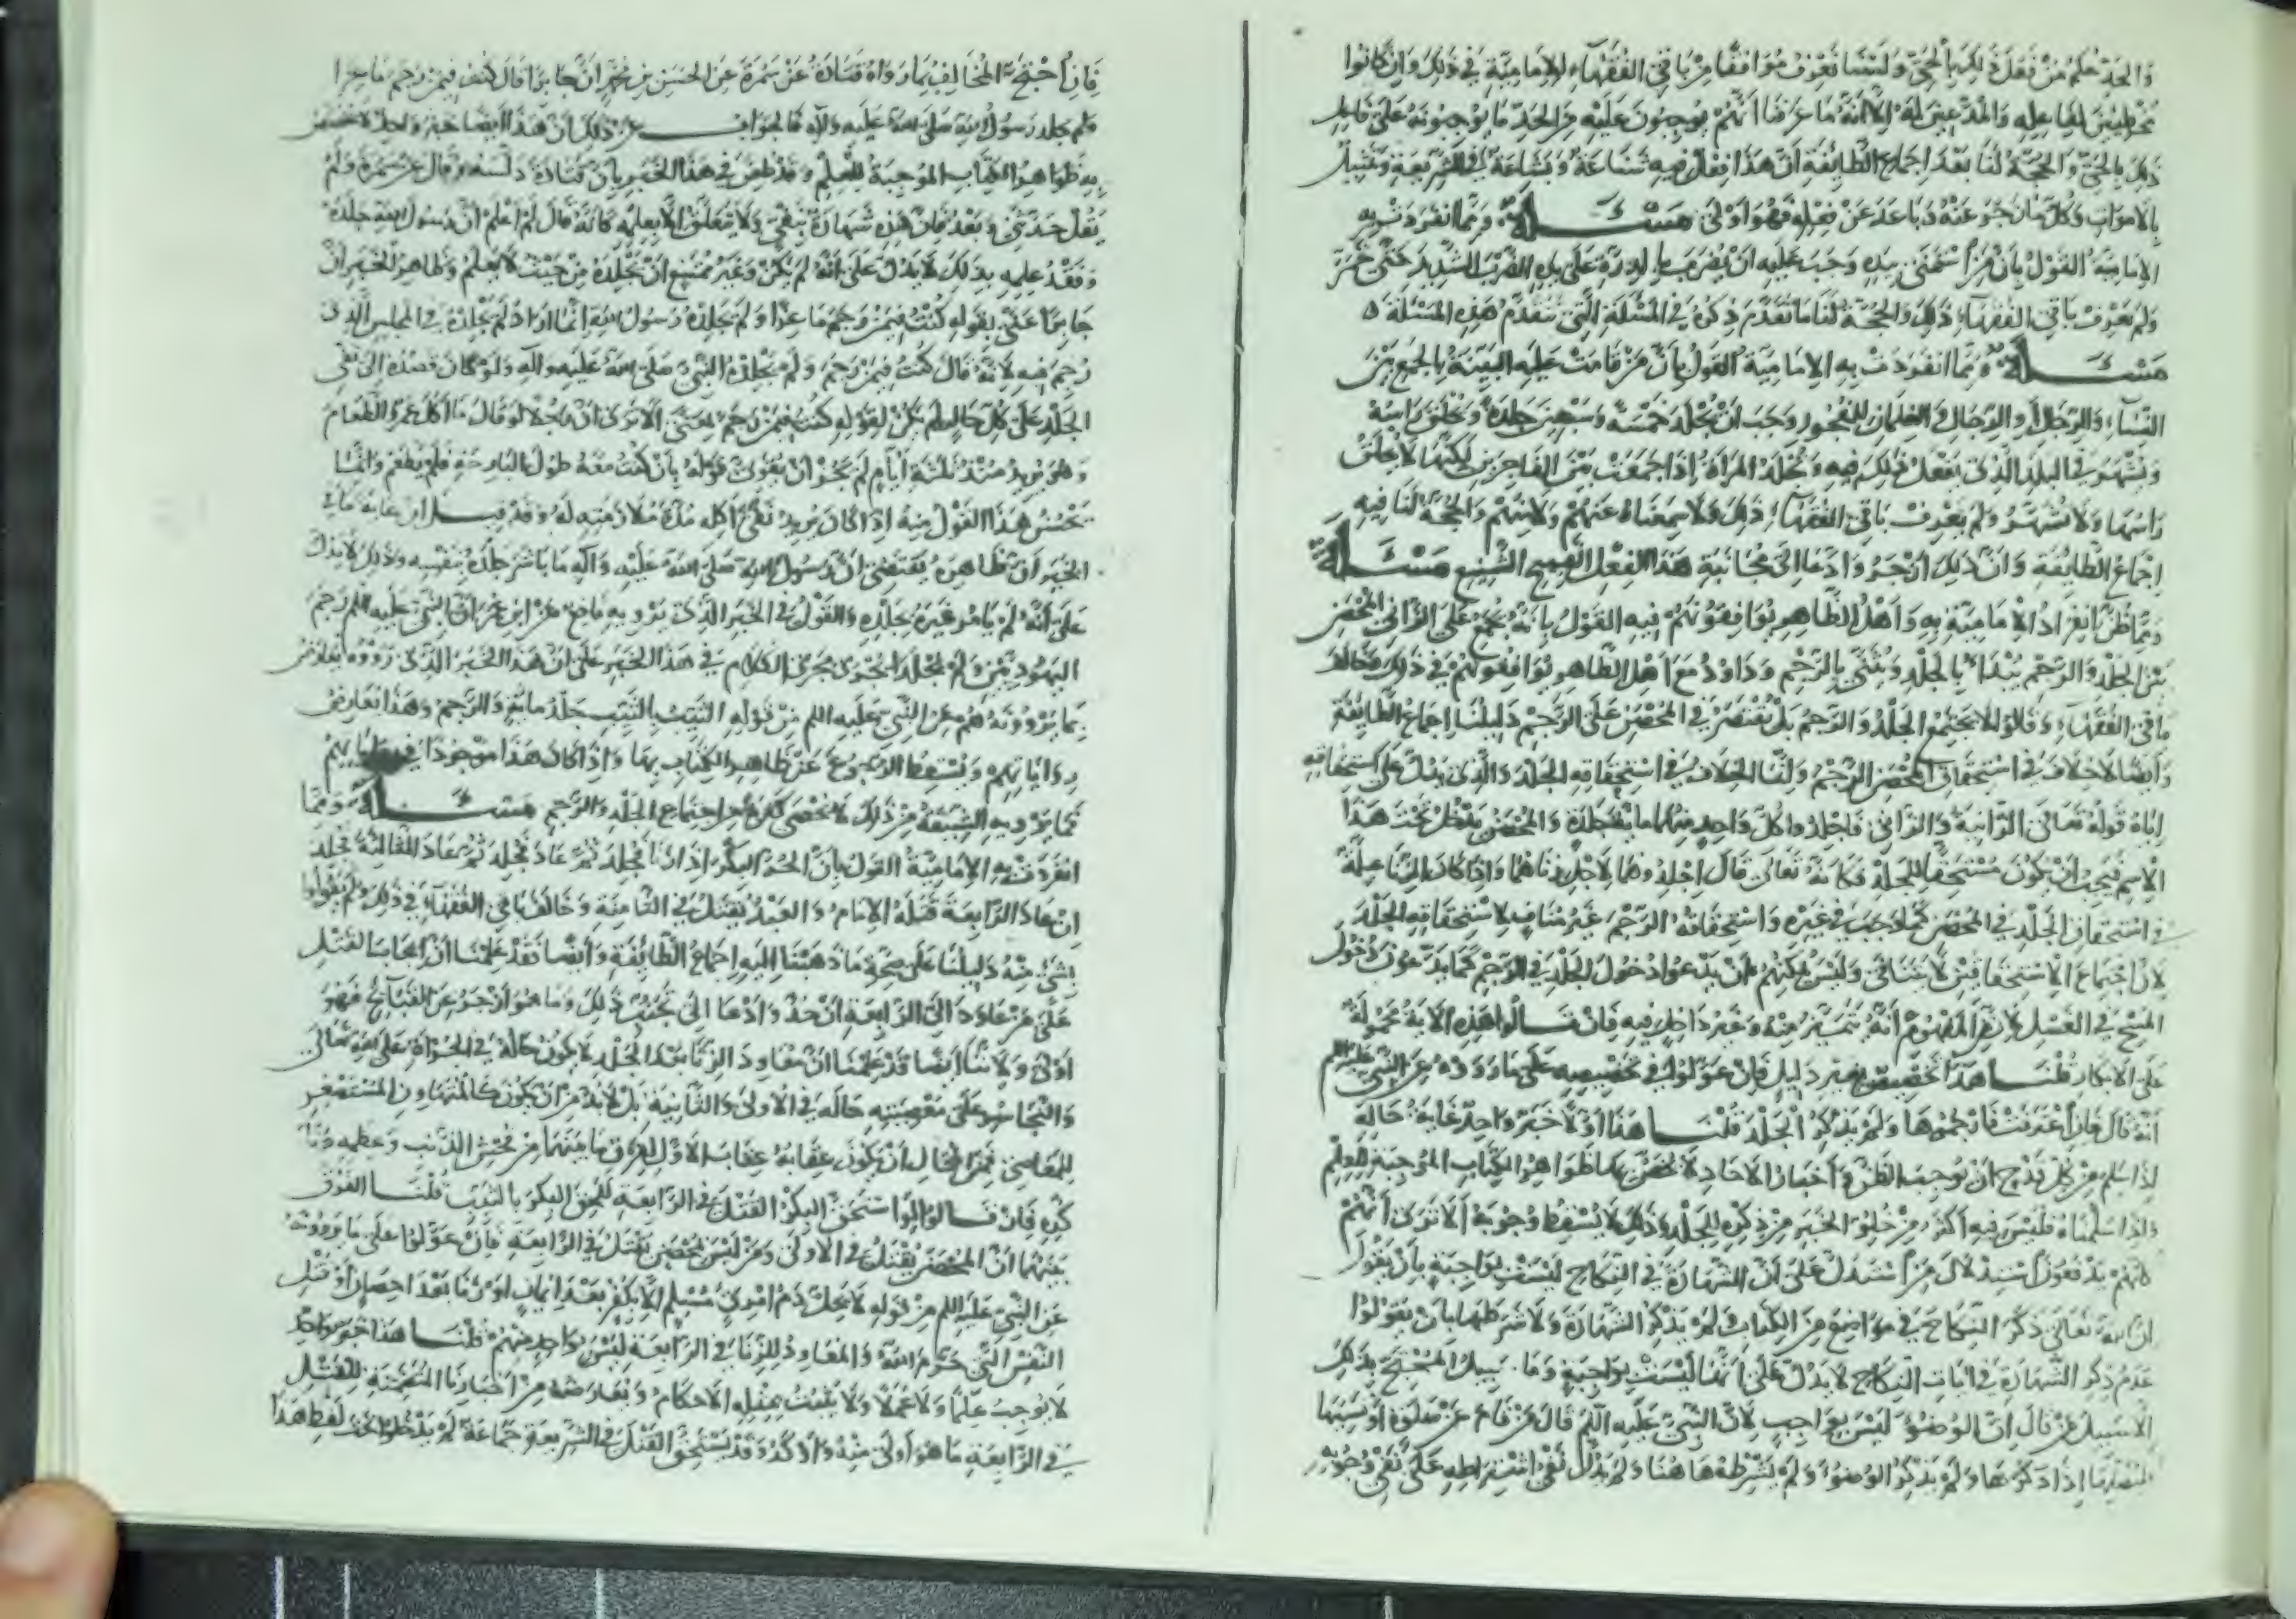 والحد حكم من فعل ذلك بالحي ولسنا نعرف موافقا من باقي الفقهاء للامامية في ذلك وان كانوا
مخطئين لفاعله والمدعين له الا انه ما عرفنا انهم يوجبون عليه من الحد ما يوجبونه على فاعل
ذلك بالحي والحجة لنا بعد اجماع الطائفة ان هذا فعل فيه شناعة وبشاعة في الشريعة وتمثيل
بالاموات وكل ما زجر عنه وباعد عن فعله فهو اولى مسئلة ومما انفردت به
الامامية القول بان من استمنى بيده وجب عليه ان يضرب بالدرة على يده الضرب الشديد حتى تحمر
ولم يعرف باقي الفقهاء ذلك والحجة لنا ما تقدم ذكره في المسئلة التي تتقدم هذه المسئلة
مسئلة ومما انفردت به الامامية القول بان من قامت عليه البينة بالجمع بين
النساء والرجال او الرجال والغلمان للفجور وجب ان يجلد خمسة وسبعين جلدة ويحلق راسه
ويشهر في البلد الذي يفعل ذلك فيه وتجلد المراة اذا جمعت بين الفاجرين لكنها لا يحلق
راسها ولا تشهر ولم يعرف باقي الفقهاء ذلك ولا سمعناه عنهم ولا منهم والحجة لنا فيه
اجماع الطائفة وان ذلك ازجر وادعا الى مجانبة هذا الفعل القبيح الشنيع مسئلة
ومما ظن انفراد الامامية به واهل الظاهر يوافقونهم فيه القول بانه يجمع على الزاني المحصن
بين الجلد والرجم يبدا بالجلد ويثنى بالرجم وداود مع اهل الظاهر يوافقونهم في ذلك وخالف
باقي الفقهاء وقالوا لا يجتمع الجلد والرجم بل يقتصر في المحصن على الرجم دليلنا اجماع الطائفة
وايضا لا خلاف في استحقاق المحصن الرجم وانما الخلاف في استحقاقه الجلد والذي يدل على استحقاقه
اياه قوله تعالى الزانية والزاني فاجلدوا كل واحد منهما مائة جلدة والمحصن يدخل تحت هذا
الاسم فيجب ان يكون مستحقا للجلد فكانه تعالى قال اجلدوهما لاجل زناهما واذا كان الزنا علة
في استحقاق الجلد في المحصن كما وجب في غيره واستحقاقه الرجم غير مناف لاستحقاقه الجلد
لان اجتماع الاستحقاقين لا يتنافى وليس يمكنهم ان يدعوا دخول الجلد في الرجم كما يدعون دخول
المسح في الغسل لان من المفهوم انه متميز منه وغير داخل فيه فان قالوا هذه الاية محمولة
على الابكار قلنا هذا تخصيص بغير دليل فان عولوا في تخصيصه على ما رووه عن النبي عليه السلم
انه قال فان اعترفت فارجموها ولم يذكر الجلد قلنا هذا اولا خبر واحد غاية حاله
اذا سلم من كل قدح ان يوجب الظن واخبار الاحاد لا يخص بها ظواهر الكتاب الموجبة للعلم
واذا سلمناه فليس فيه اكثر من خلو الخبر من ذكر للجلد وذلك لا يسقط وجوبه الا ترى انهم
كلهم يدفعون استدلال من استدل على ان الشهادة في النكاح ليست بواجبة بان يقول
ان الله تعالى ذكر النكاح في مواضع من الكتاب ولم يذكر الشهادة ولا شرطها بان يقولوا
عدم ذكر الشهادة في ايات النكاح لا يدل على انها ليست بواجبة وما سبيل المحتج بذلك
الا سبيل من قال ان الوضوء ليس بواجب لان النبي عليه السلم قال من نام عن صلوة او نسيها
فليصلها اذا ذكرها ولم يذكر الوضوء ولم يشرطه هاهنا ولم يدل نفي اشتراطه على نفي وجوبه
فان احتج المخالف بما رواه قتادة عن سمرة عن الحسن بن محمد ان جابرا قال كنت فيمن رجم ماعزا
ولم يجلده رسول الله صلى الله عليه واله فالجواب عن ذلك ان هذا ايضا خبر واحد لا تخص
به ظواهر الكتاب الموجبة للعلم وقد طعن في هذا الخبر بان قتادة دلسه وقال عن سمرة ولم
يقل حدثني وبعد فان هذه شهادة بنفي ولا يتعلق الا بعلمه كانه قال لم اعلم ان رسول الله جلده
وفقد علمه بذلك لا يدل على انه لم يكن وغير ممتنع ان يجلده من حيث لا يعلم وظاهر الخبر ان
جابرا عنى بقوله كنت فيمن رجم ماعزا ولم يجلده رسول الله انما اراد لم يجلده في المجلس الذي
رجم فيه لانه قال كنت فيمن رجم ولم يجلده النبي صلى الله عليه واله ولو كان قصده الى نفي
الجلد على كل حال لم يكن لقوله كنت فيمن رجم معنى الا ترى ان رجلا لو قال ما اكل عمرو الطعام
وهو يريد منذ ثلثة ايام لم يجز ان يقوى قوله بان كنت معه طول البارحة فلم يطعم وانما
يحسن هذا القول منه اذا كان يريد نفي اكله مدة ملازمته له وقد قيل ان غاية ما في
الخبر ان ظاهره يقتضي ان رسول الله صلى الله عليه واله ما باشر جلده بنفسه وذلك لا يدل
على انه لم يامر غيره بجلده والقول في الخبر الذي يرويه نافع عن ابن عمر ان النبي عليه السلم رجم
اليهوديين ولم يجلدا يجري مجرى الكلام في هذا الخبر على ان هذا الخبر الذي رووه يعارض
بما يروونه هم عن النبي عليه السلم من قوله الثيب بالثيب جلد مائة والرجم وهذا تعارض
رواياتهم ويسقط الرجوع عن ظاهر الكتاب بها واذا كان هذا موجودا في رواياتهم
فما يرويه الشيعة من ذلك لا يحصى كثرة من اجتماع الجلد والرجم مسئلة ومما
انفردت به الامامية القول بان الحر البكر اذا زنا فجلد ثم عاد فجلد ثم عاد الثالثة فجلد
ان عاد الرابعة قتله الامام والعبد يقتل في الثامنة وخالف باقي الفقهاء في ذلك ولم يقولوا
بشيء منه دليلنا على صحة ما ذهبنا اليه اجماع الطائفة وايضا فقد علمنا ان ايجاب القتل
على من عاود الى الرابعة ازجر وادعا الى تجنب ذلك وما هو ازجر عن القبائح فهو
اولى ولاننا ايضا قد علمنا ان معاود الزنا بعد الجلد لا يكون حاله في الجراة على الله تعالى
والتجاسر على معصيته حاله في الاولى والثانية بل لا بد من ان يكون كالمتهاون المستصغر
للمعاصي فمن المحال ان يكون عقابه عقاب الاول لفرق ما بينهما من فحش الذنب وعظمه وتا
كده فان قالوا لو استحق البكر القتل في الرابعة للحق البكر بالثيب قلنا الفرق
بينهما ان المحصن يقتل في الاولى ومن ليس بمحصن يقتل في الرابعة فان عولوا على ما يروونه
عن النبي عليه السلم من قوله لا يحل دم امرئ مسلم الا بكفر بعد ايمان او زنا بعد احصان او قتل
النفس التي حرم الله والمعاود للزنا في الرابعة ليس بواحد منهم قلنا هذا خبر واحد
لا يوجب علما ولا عملا ولا يثبت بمثله الاحكام ويعارضه من اخبارنا المتضمنة للقتل
في الرابعة ما هو اولى منه واوكد وقد يستحق القتل في الشريعة جماعة لم يدخلوا تحت لفظ هذا